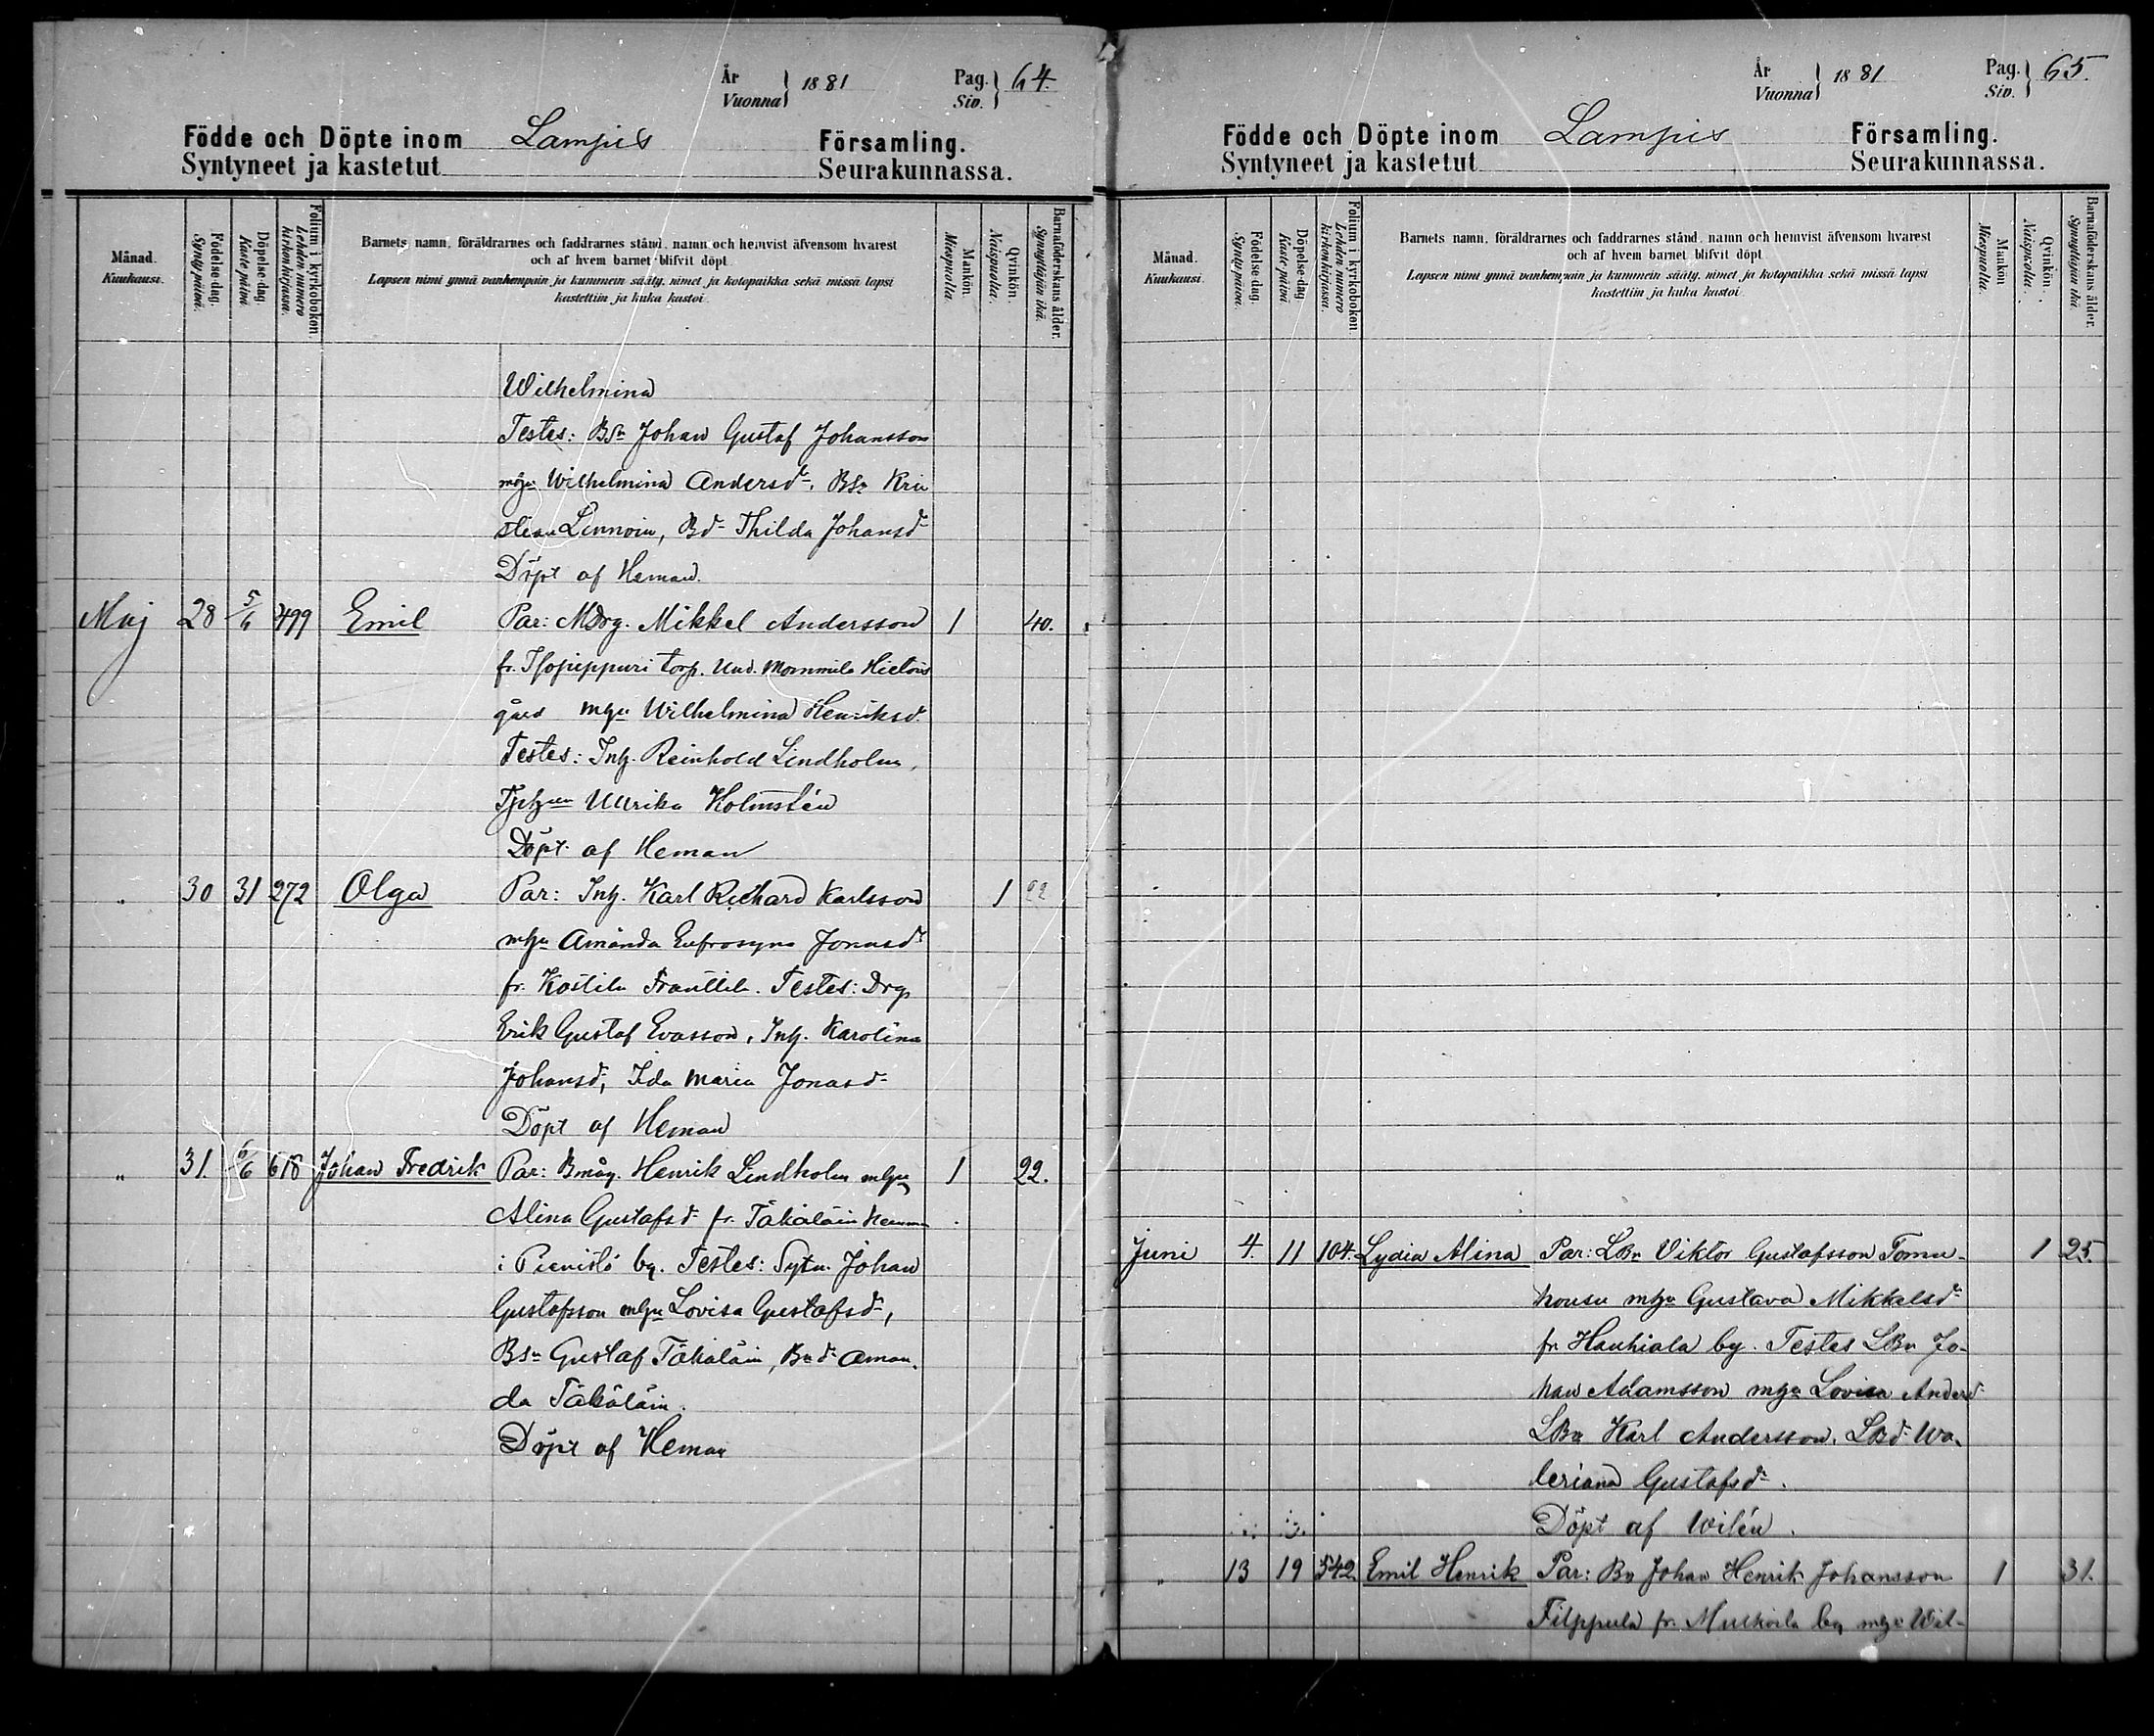 År
Vuonna } 1881 Pag.
Siv. } 64.
Födde och Döpte inom Lampis Församling.
Syntyneet ja kastetut Seurakunnassa.
Månad.
Kuukausi.
Födelse-dag.
Syntypäivä.
Döpelse-dag.
Kaste päivä.
Folium i kyrkoboken.
Lehden numero
kirkonkirjassa.
Barnets namn, föräldrarnes och faddrarnes stånd, namn och hemvist äfvensom hvarest
och af hvem barnet blifvit döpt.
Lapsen nimi ynnä vanhempain ja kummein sääty, nimet ja kotopaikka sekä missä lapsi
kastettiin ja kuka kastoi.
Mankön.
Miespuolia.
Qvinkön.
Naispuolia.
Barnaföderskans ålder.
Synnyttäjän ikä.
Wilhelmina
Testes: Bsn Johan Gustaf Johansson
mhu Wilhelmina Andersdr, Bsn Kri
stian Linnoin, Bd- Thilda Johansd-
Döpt af Heman.
Maj 28 5/6 499 Emil Par: MDrg. Mikkel Andersson 1 40.
fr. Isopeippuri torp. Und. Mommila Hietois
gård mhu Wilhelmina Henriksd-
Testes: Inh. Reinhold Lindholm,
Ullrika Holmstén
Döpt af Heman
" 30 31 272 Olga Par: Inh. Karl Richard Karlsson 1 22
mhu Amanda Eufrosyna Jonasdr
fr. Kostila Franttila. Testes: Drg
Erik Gustaf Evasson, Inh. Karolina
Johansd-, Ida Maria Jonasd-
Döpt af Heman
" 31. 6/6 618 Johan Fredrik Par: Bmåg. Henrik Lindholm mhu 1 22.
Alina Gustafsd- fr. Täkäläin Hemm
i Pienistö by. Testes: Sytn. Johan
Gustafsson mhu Lovisa Gustafsd-,
Bsn Gustaf Täkäläin, Bnd- Aman-
da Täkäläin.
Döpt af Heman
År
Vuonna } 1881 Pag.
Siv. } 65.
Födde och Döpte inom Lampis Församling.
Syntyneet ja kastetut Seurakunnassa.
Månad.
Kuukausi.
Födelse-dag.
Syntypäivä.
Döpelse-dag.
Kaste päivä.
Folium i kyrkoboken.
Lehden numero
kirkonkirjassa.
Barnets namn, föräldrarnes och faddrarnes stånd, namn och hemvist äfvensom hvarest
och af hvem barnet blifvit döpt.
Lapsen nimi ynnä vanhempain ja kummein sääty, nimet ja kotopaikka sekä missä lapsi
kastettiin ja kuka kastoi.
Mankön.
Miespuolia.
Qvinkön.
Naispuolia.
Barnaföderskans ålder.
Synnyttäjän ikä.
Juni 4. 11 104. Lydia Alina Par: LBn Viktor Gustafsson Tomu- 1 25.
housu mhu Gustava Mikkelsdr
fr. Hauhiala by. Testes LBn Jo-
han Adamsson mhu Lovisa Andersd-
LBn Karl Andersson, LBd- Wa-
leriana Gustafsd-.
Döpt af Wilén.
" 13 19 542. Emil Henrik Par: Bn Johan Henrik Johansson 1 31.
Filppula fr. Muikoila by mhu Wil-